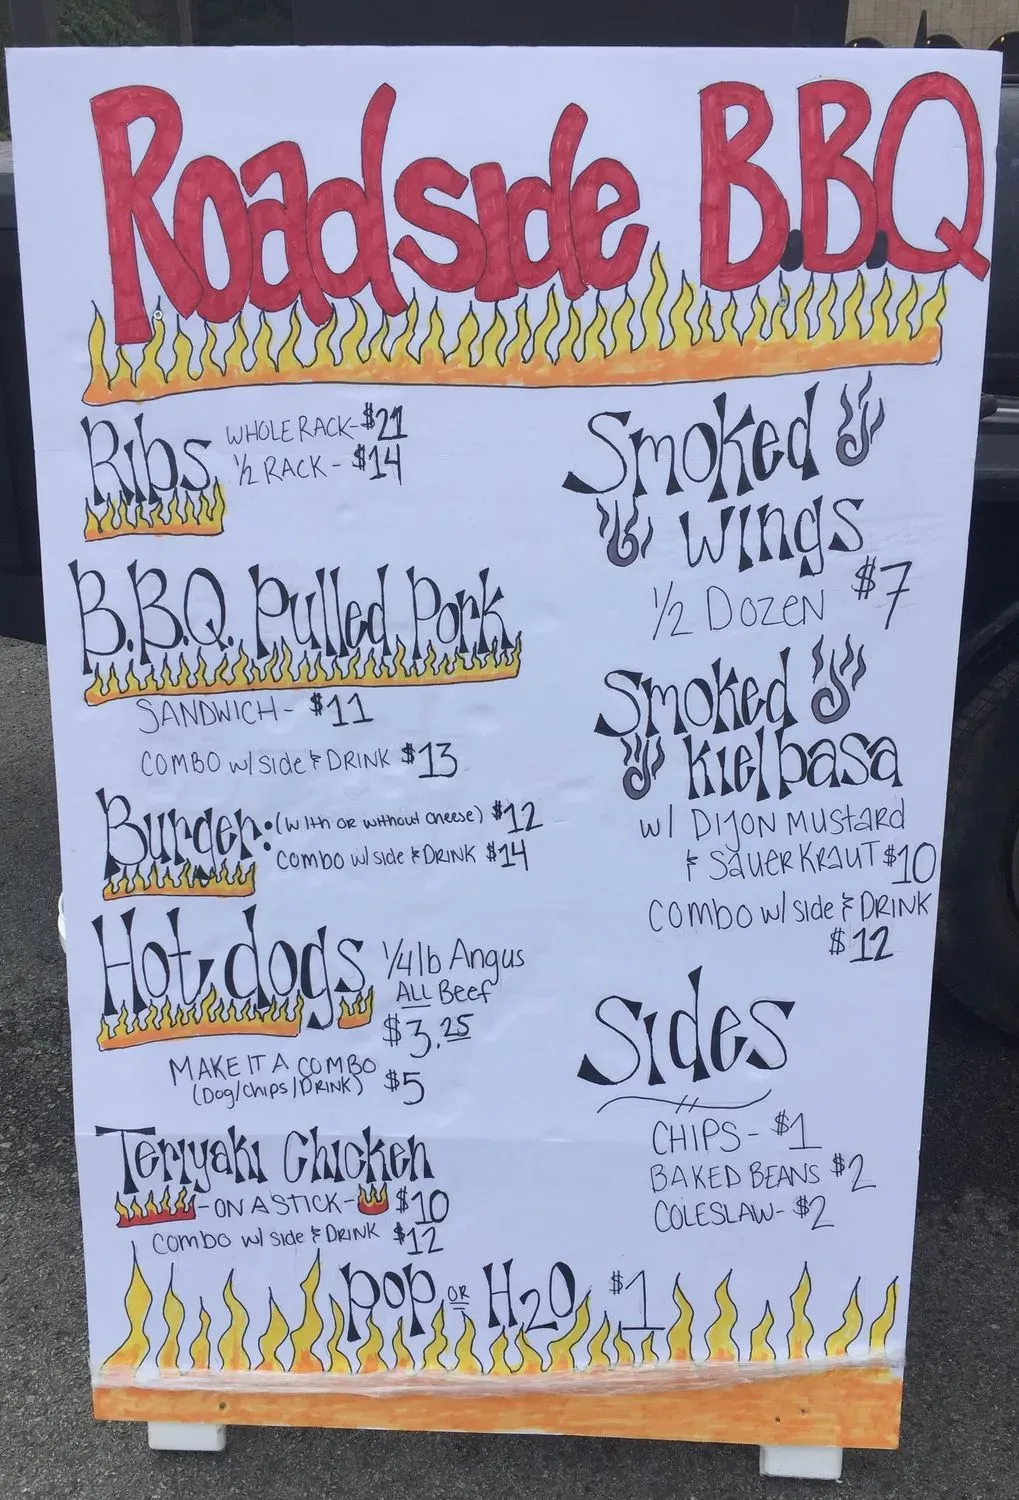 Roadside B.B.Q
Ribs
WHOLE RACK- $21
1/2 RACK - $14
B.B.Q. Pulled Pork
SANDWICH - $11
COMBO w/ side & DRINK $13
Burger: (with or without cheese) $12
combo w/ side & DRINK $14
Hot dogs
1/4 lb Angus
ALL Beef
$3.25
MAKE IT A COMBO
(Dog/chips/DRINK) $5
Teriyaki Chicken
-ON A STICK- $10
combo w/ side & DRINK $12
Smoked
wings
1/2 DOZEN $7
Smoked
kielbasa
w/ DIJON MUSTARD
& SauerKRAUT $10
COMBO w/ side & DRINK
$12
Sides
CHIPS - $1
BAKED BEANS $2
COLESLAW - $2
POP OR H2O $1